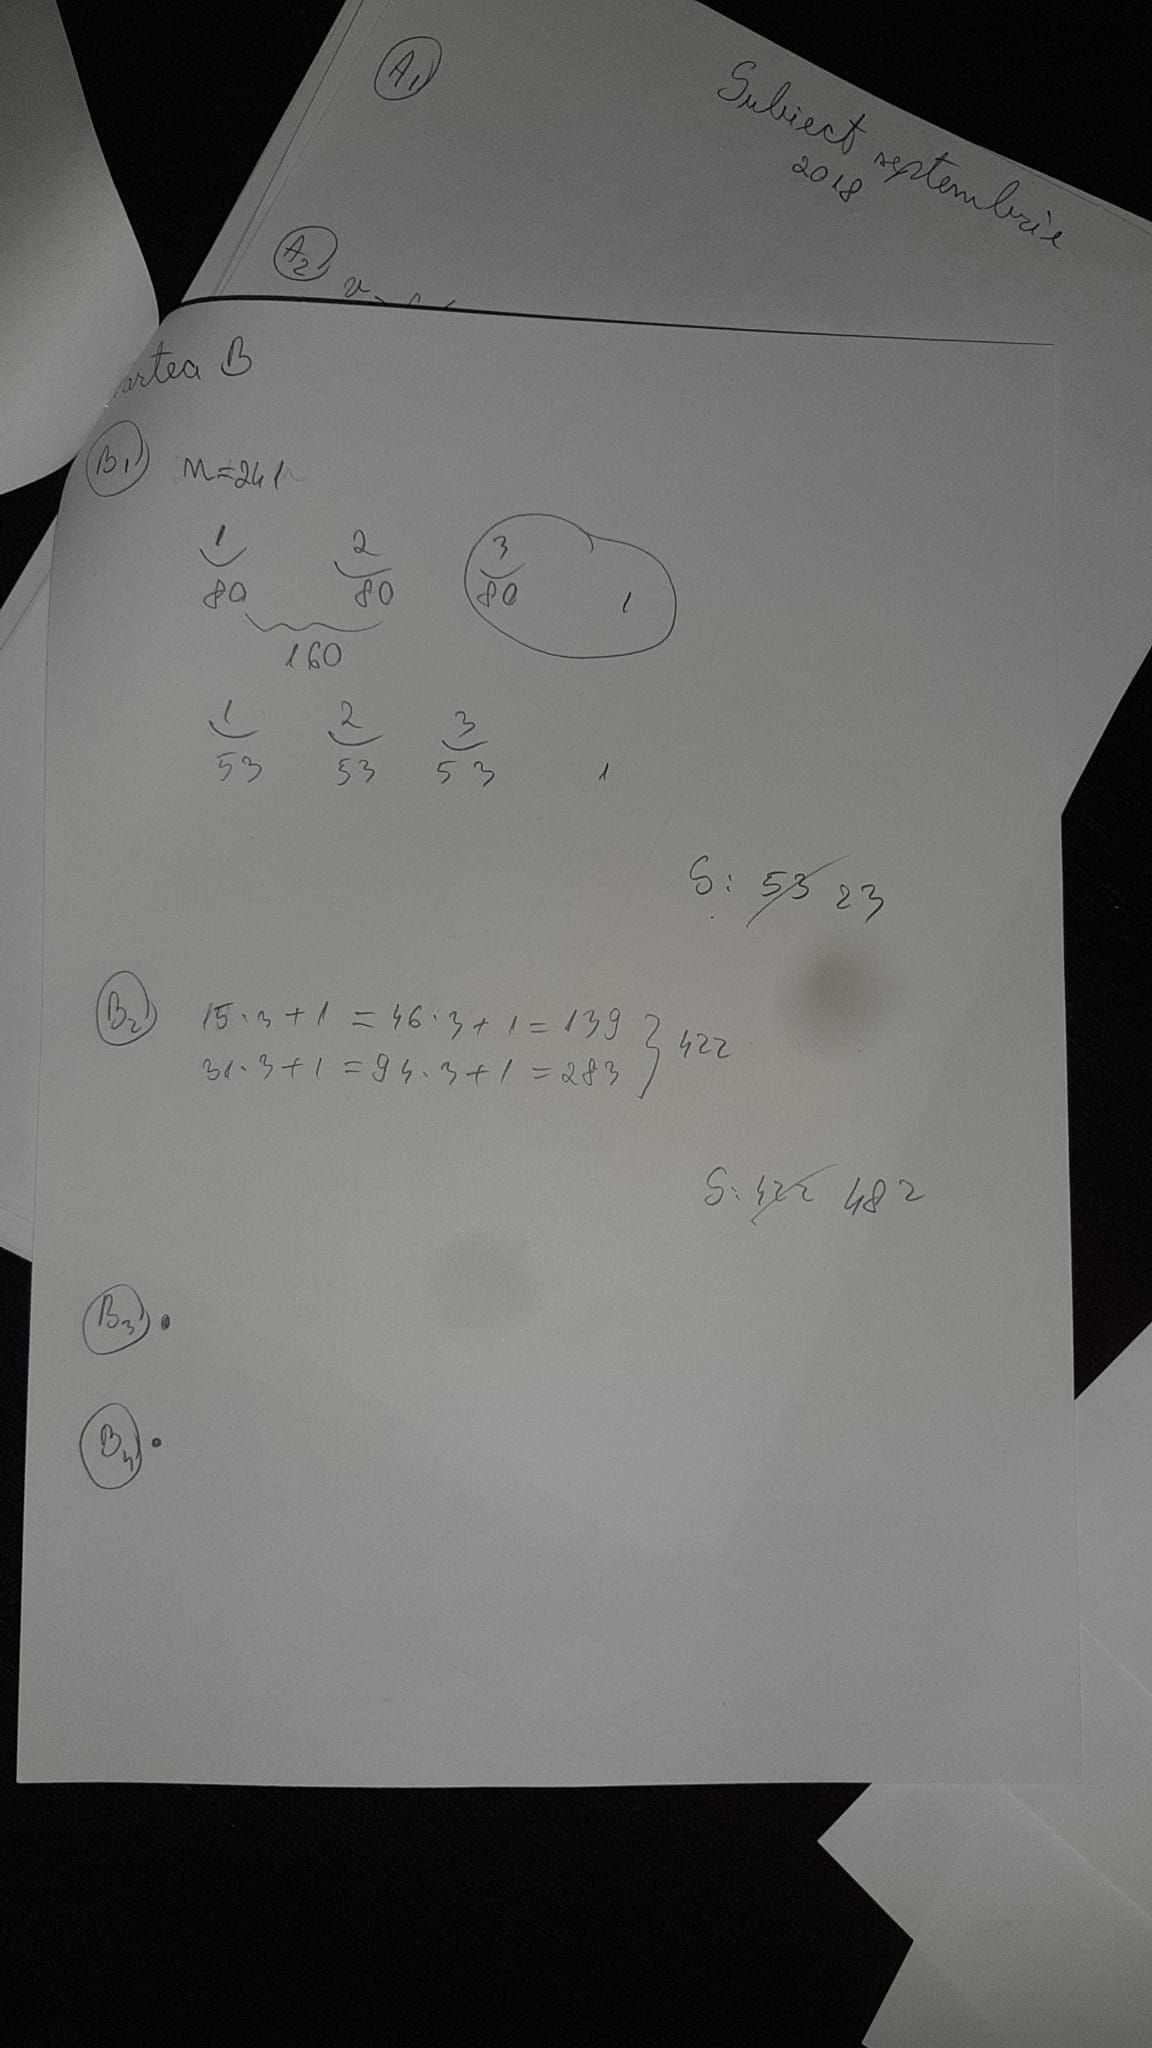 A1
Subiect septembrie
2018
A2
artea B
B1 n=241
1 2 3
80 80 80 1
160
1 2 3
53 53 53 1
S: 53 23
B2 15·3+1=46·3+1=139 } 422
31·3+1=94·3+1=283
S: 422 482
B3 •
B4 •